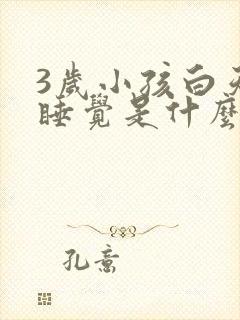 3歲小孩白天
睡覺是什麼
孔意